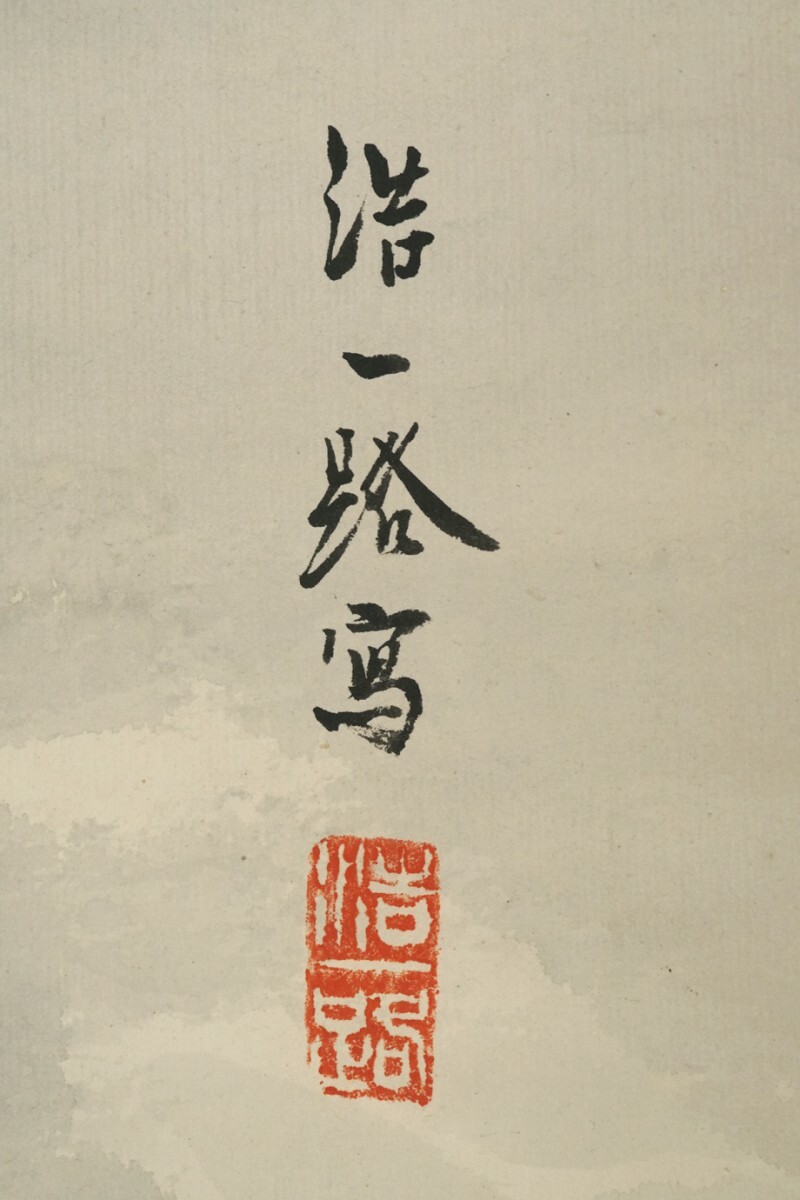 浩一路寫
浩一路